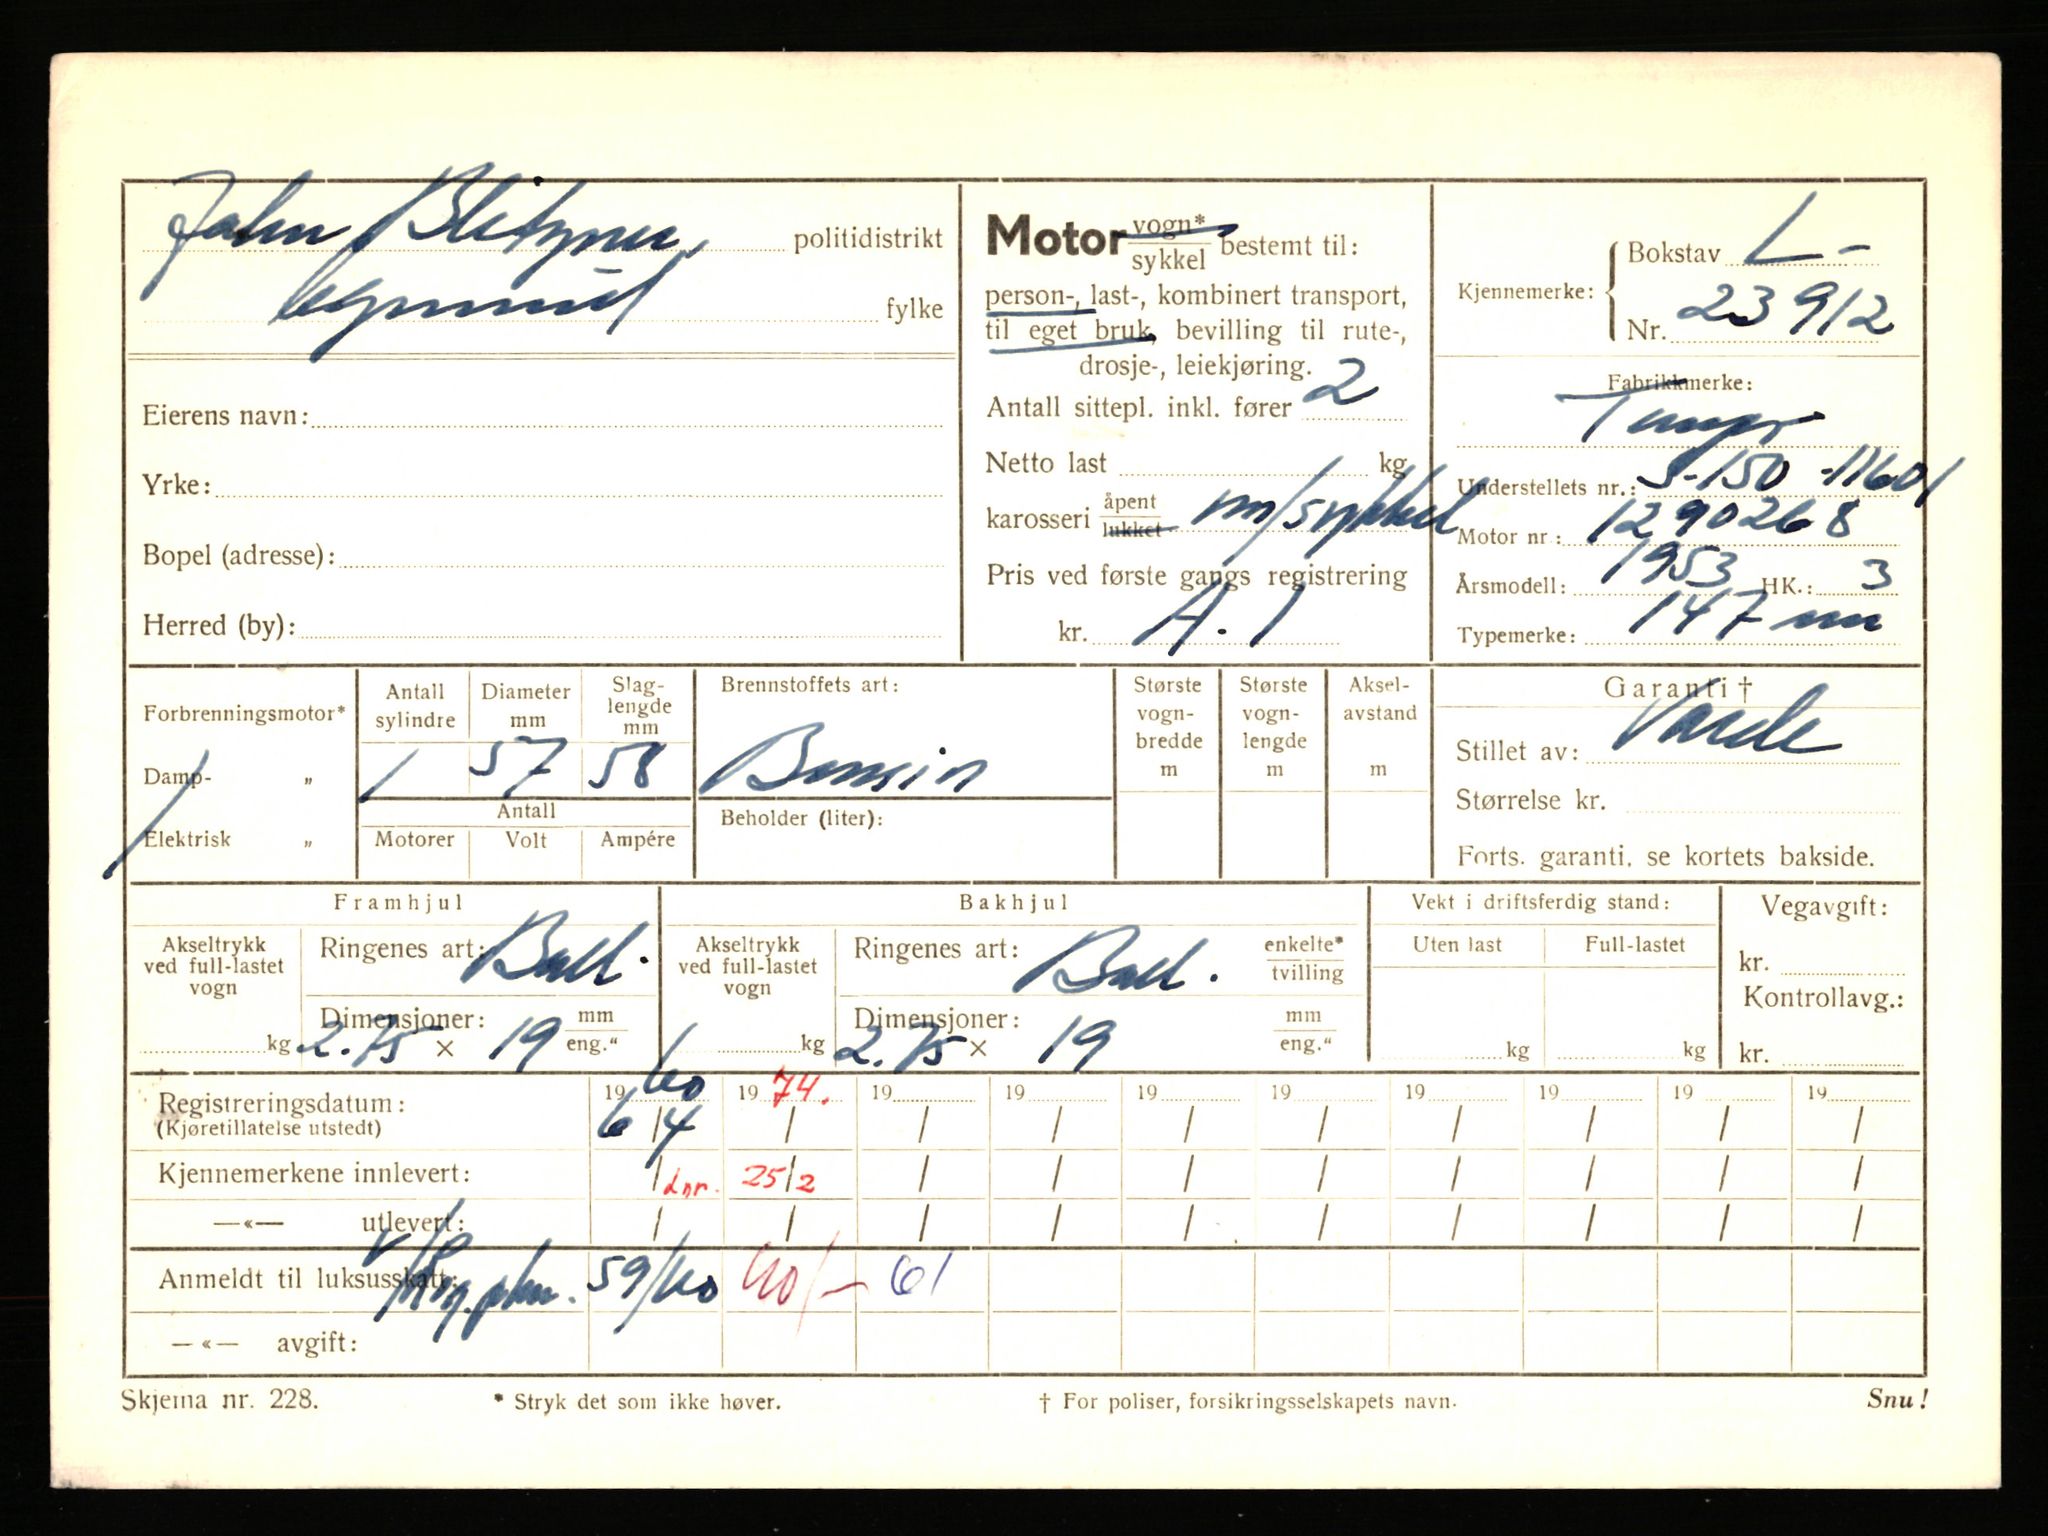 John
politidistrikt
fylke
Eierens navn:
Yrke:
Bopel (adresse):
Herred (by):
Motor vogn* / sykkel bestemt til:
person-, last-, kombinert transport,
til eget bruk, bevilling til rute-,
drosje-, leiekjøring.
Antall sittepl. inkl. fører 2
Netto last kg
karosseri åpent / lukket m/sykkel
Pris ved første gangs registrering
kr. A. 1
Kjennemerke: Bokstav L-
Nr. 23912
Fabrikkmerke:
Tempo
Understellets nr.: S-150-11601
Motor nr: 1290268
Årsmodell: 1953 HK.: 3
Typemerke: 147
Forbrenningsmotor*
Damp- „
Elektrisk „
Antall sylindre 1
Diameter mm 57
Slag-lengde mm 58
Antall
Motorer Volt Ampére
Brennstoffets art:
Bensin
Beholder (liter):
Største vogn-bredde m
Største vogn-lengde m
Aksel-avstand m
Garanti †
Stillet av: Varde
Størrelse kr.
Forts. garanti, se kortets bakside.
Framhjul
Akseltrykk ved full-lastet vogn kg
Ringenes art: Ball.
Dimensjoner: 2.75 x 19 mm / eng."
Bakhjul
Akseltrykk ved full-lastet vogn kg
Ringenes art: Ball. enkelte* / tvilling
Dimensjoner: 2.75 x 19 mm / eng."
Vekt i driftsferdig stand:
Uten last Full-lastet
kg kg
Vegavgift:
kr.
Kontrollavg.:
kr.
19 60 19 74. 19 19 19 19 19 19 19 19
Registreringsdatum: 6/4 / / / / / / / / /
(Kjøretillatelse utstedt)
Kjennemerkene innlevert: / Lnr. 25/2 / / / / / / / /
—«— utlevert: / / / / / / / / / /
Anmeldt til luksusskatt: 59/60 40/- 61
—«— avgift:
Skjema nr. 228.
* Stryk det som ikke høver.
† For poliser, forsikringsselskapets navn.
Snu!